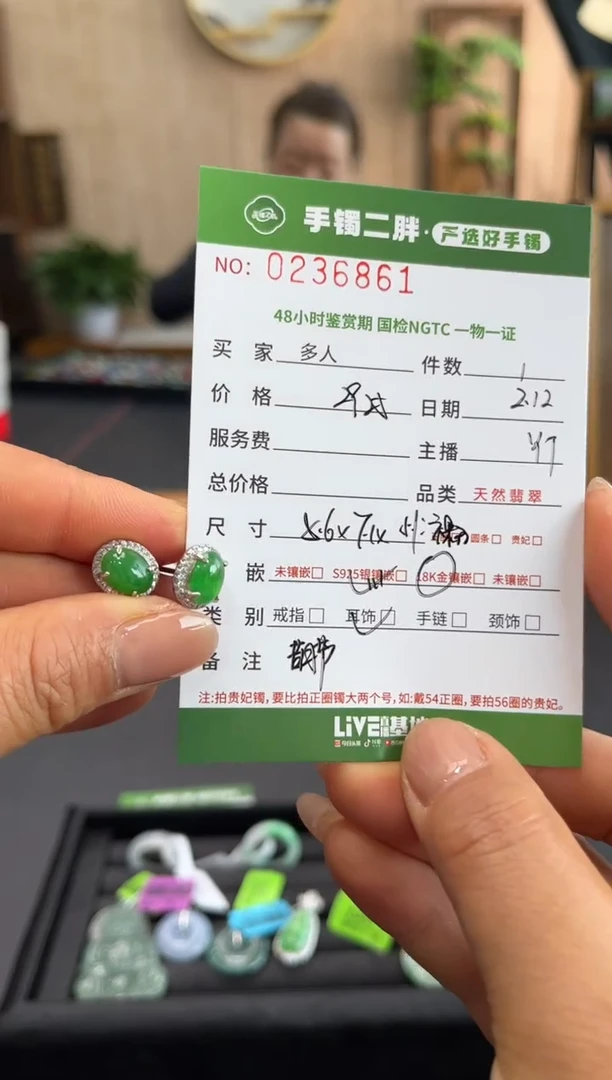 手镯二胖·严选好手镯
NO: 0236861
48小时鉴赏期 国检NGTC 一物一证
买 家 多人 件数 1
价 格 日期 2.12
服务费 主播
总价格 品类 天然翡翠
尺 寸 5.6x7.1x 圆条□ 贵妃□
嵌 未镶嵌□ S925银镶嵌□ 18K金镶嵌□ 未镶嵌□
类 别 戒指□ 耳饰□ 手链□ 颈饰□
备 注
注:拍贵妃镯,要比拍正圈镯大两个号,如:戴54正圈,要拍56圈的贵妃。
LiVE 基地